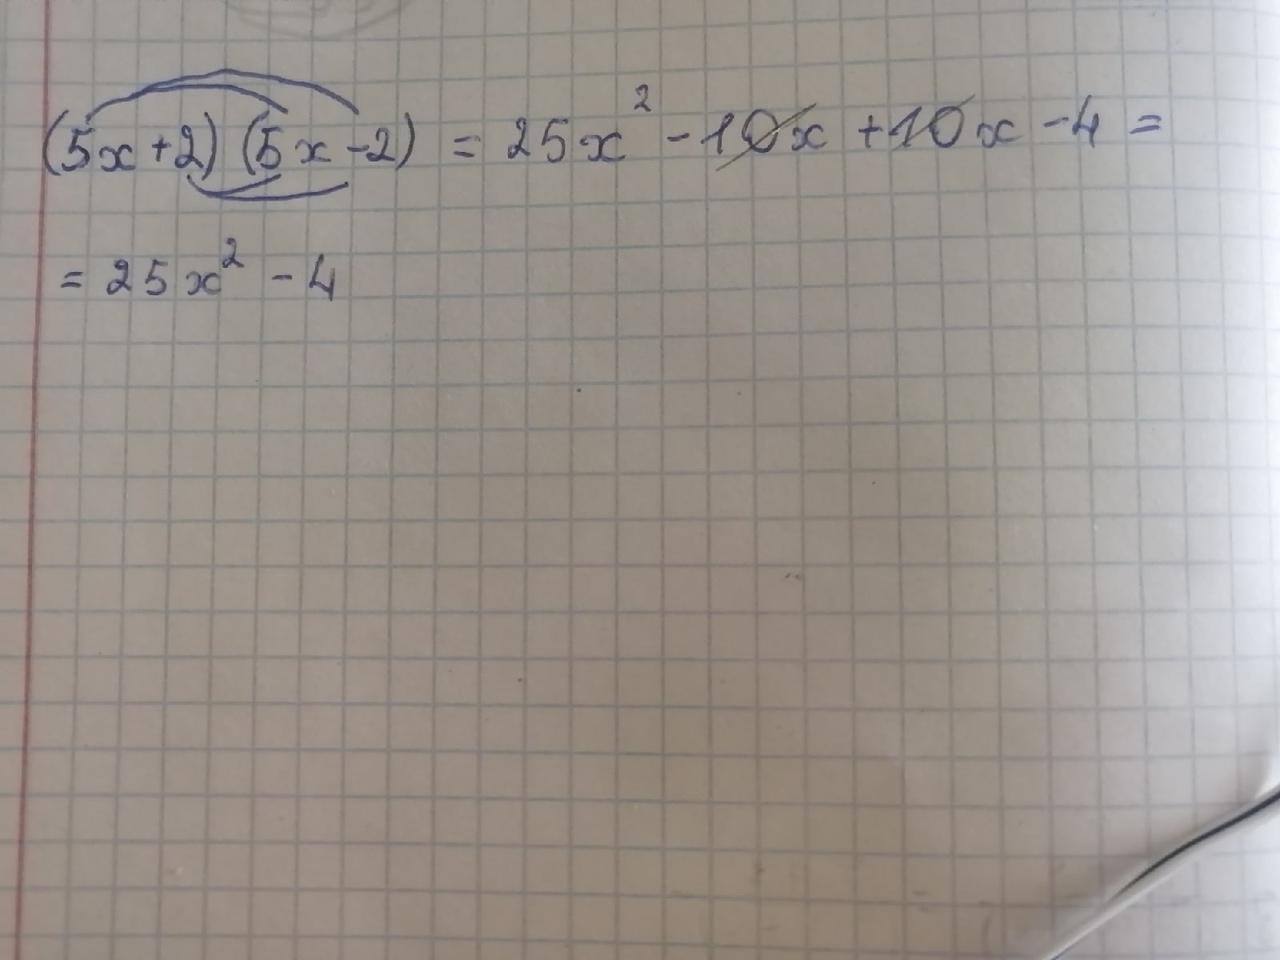 (5x+2)(5x-2) = 25x² - 10x + 10x - 4 =
= 25x² - 4